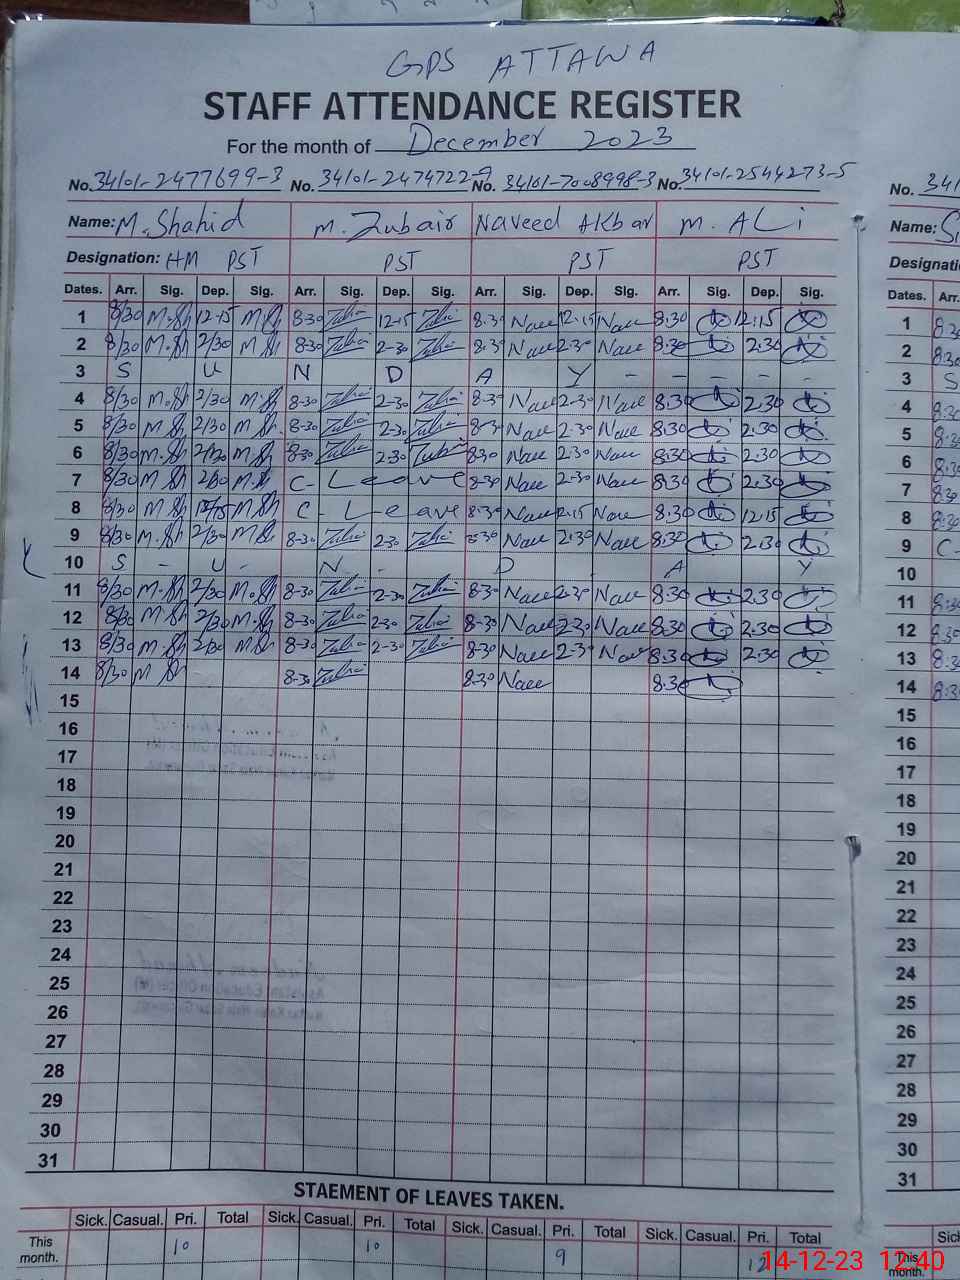 GPS ATTAWA
STAFF ATTENDANCE REGISTER
For the month of December 2023
No. 34101-2477699-3 No. 34101-2474722-9 No. 34101-7008998-3 No. 34101-2544273-5 No. 341
Name: M. Shahid M. Zubair Naveed Akbar M. ALi Name:
Designation: HM PST PST PST PST Designati
Dates. Arr. Sig. Dep. Sig. Arr. Sig. Dep. Sig. Arr. Sig. Dep. Sig. Arr. Sig. Dep. Sig. Dates. Arr.
1 8/30 M.Sh 12-15 M.Sh 8-30 12-15 8.30 Nave 12.15 Nave 8.30 12.15 1 8.30
2 8/30 M.Sh 2/30 M.Sh 8-30 2-30 8.30 Nave 2.30 Nave 8.30 2.30 2 8.30
3 S U N D A Y - - - - - 3 S
4 8/30 M.Sh 2/30 M.Sh 8-30 2-30 8.30 Nave 2-30 Nave 8.30 2.30 4 8.30
5 8/30 M.Sh 2/30 M.Sh 8-30 2-30 8-30 Nave 2-30 Nave 8.30 2.30 5 8.30
6 8/30 M.Sh 2/30 M.Sh 8-30 2-30 8.30 Nave 2.30 Nave 8.30 2.30 6 8.30
7 8/30 M.Sh 2/30 M.Sh C- Leave 8-30 Nave 2-30 Nave 8.30 2.30 7 8.30
8 8/30 M.Sh 12/15 M.Sh C- Leave 8-30 Nave 12.15 Nave 8.30 12.15 8 8.30
9 8/30 M.Sh 2/30 M.Sh 8-30 2-30 8.30 Nave 2.30 Nave 8.30 2.30 9 C-
10 S - U - N - D A Y 10
11 8/30 M.Sh 2/30 M.Sh 8-30 2-30 8-30 Nave 2.30 Nave 8.30 2.30 11 8.30
12 8/30 M.Sh 2/30 M.Sh 8-30 2-30 8-30 Nave 2-30 Nave 8.30 2.30 12 8.30
13 8/30 M.Sh 2/30 M.Sh 8-30 2-30 8-30 Nave 2-30 Nave 8.30 2.30 13 8.30
14 8/30 M Sh 8-30 8.30 Nave 8.30 14 8.30
15 15
16 16
17 17
18 18
19 19
20 20
21 21
22 22
23 23
24 24
25 25
26 26
27 27
28 28
29 29
30 30
31 31
STAEMENT OF LEAVES TAKEN.
Sick. Casual. Pri. Total Sick. Casual. Pri. Total Sick. Casual. Pri. Total Sick. Casual. Pri. Total Sick
This month. 10 10 9 12 This month.
14-12-23 12:40